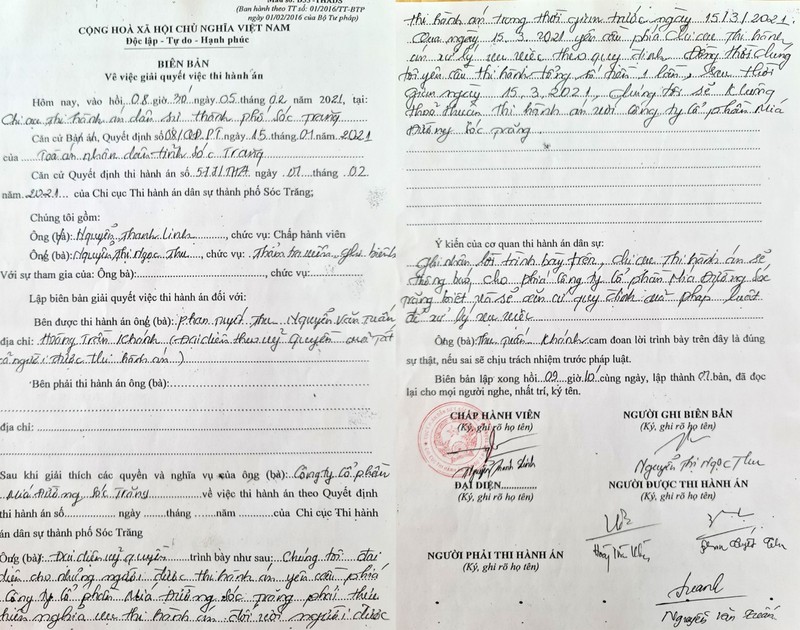 Mẫu số: D55-THADS
(Ban hành theo TT số: 01/2016/TT-BTP
ngày 01/02/2016 của Bộ Tư pháp)
CỘNG HOÀ XÃ HỘI CHỦ NGHĨA VIỆT NAM
Độc lập - Tự do - Hạnh phúc
BIÊN BẢN
Về việc giải quyết việc thi hành án
Hôm nay, vào hồi 08 giờ 30 ngày 05 tháng 02 năm 2021, tại:
Chi cục Thi hành án dân sự thành phố Sóc Trăng
Căn cứ Bản án, Quyết định số 08/ ngày 15 tháng 01 năm 2021
của Toà án nhân dân tỉnh Sóc Trăng
Căn cứ Quyết định thi hành án số ngày 01 tháng 02
năm 2021 của Chi cục Thi hành án dân sự thành phố Sóc Trăng;
Chúng tôi gồm:
Ông (bà): Nguyễn Thanh Linh, chức vụ: Chấp hành viên
Ông (bà): Nguyễn Thị Ngọc Thu, chức vụ: Thẩm tra viên, ghi biên
Với sự tham gia của: Ông bà: chức vụ:
Lập biên bản giải quyết việc thi hành án đối với:
Bên được thi hành án ông (bà): Phan Tuyết Thu, Nguyễn Văn Tuấn
địa chỉ: Hoàng Trần Khánh (Đại diện theo uỷ quyền của tất
cả người được thi hành án)
Bên phải thi hành án ông (bà):
địa chỉ:
Sau khi giải thích các quyền và nghĩa vụ của ông (bà): Công ty Cổ phần
Mía Đường Sóc Trăng về việc thi hành án theo Quyết định
thi hành án số ngày tháng năm của Chi cục Thi hành
án dân sự thành phố Sóc Trăng
Ông (bà): Đại diện uỷ quyền trình bày như sau: Chúng tôi đại
diện cho những người được thi hành án yêu cầu phía
Công ty Cổ phần Mía Đường Sóc Trăng phải thực
hiện nghĩa vụ thi hành án đối với người được
thi hành án trong thời gian trước ngày 15/3/2021.
Qua ngày 15.3.2021 yêu cầu phía Chi cục Thi hành
án xử lý vụ việc theo quy định. Đồng thời chúng
tôi yêu cầu thi hành tổng số tiền 1 lần, sau thời
gian ngày 15,3,2021, chúng tôi sẽ không
thoả thuận thi hành án với Công ty Cổ phần Mía
Đường Sóc Trăng.
Ý kiến của cơ quan thi hành án dân sự:
Ghi nhận lời trình bày trên, Chi cục Thi hành án sẽ
thông báo cho phía Công ty Cổ phần Mía Đường Sóc
Trăng biết và sẽ căn cứ quy định của pháp luật
để xử lý vụ việc
Ông (bà): Thu, Tuấn, Khánh cam đoan lời trình bày trên đây là đúng
sự thật, nếu sai sẽ chịu trách nhiệm trước pháp luật.
Biên bản lập xong hồi 09 giờ 10 cùng ngày, lập thành 07 bản, đã đọc
lại cho mọi người nghe, nhất trí, ký tên.
CHẤP HÀNH VIÊN
(Ký, ghi rõ họ tên)
Nguyễn Thanh Linh
NGƯỜI GHI BIÊN BẢN
(Ký, ghi rõ họ tên)
Nguyễn Thị Ngọc Thu
ĐẠI DIỆN
(Ký, ghi rõ họ tên)
NGƯỜI ĐƯỢC THI HÀNH ÁN
(Ký, ghi rõ họ tên)
NGƯỜI PHẢI THI HÀNH ÁN
(Ký, ghi rõ họ tên)
Nguyễn Văn Tuấn